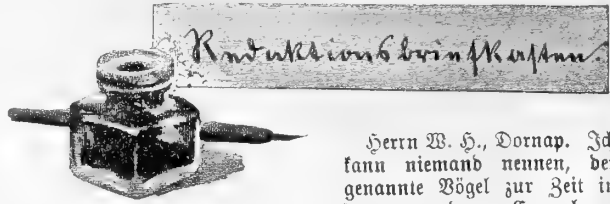 Redaktionsbriefkasten.
Herrn W. H., Dornap. Ich
kann niemand nennen, der
genannte Vögel zur Zeit in